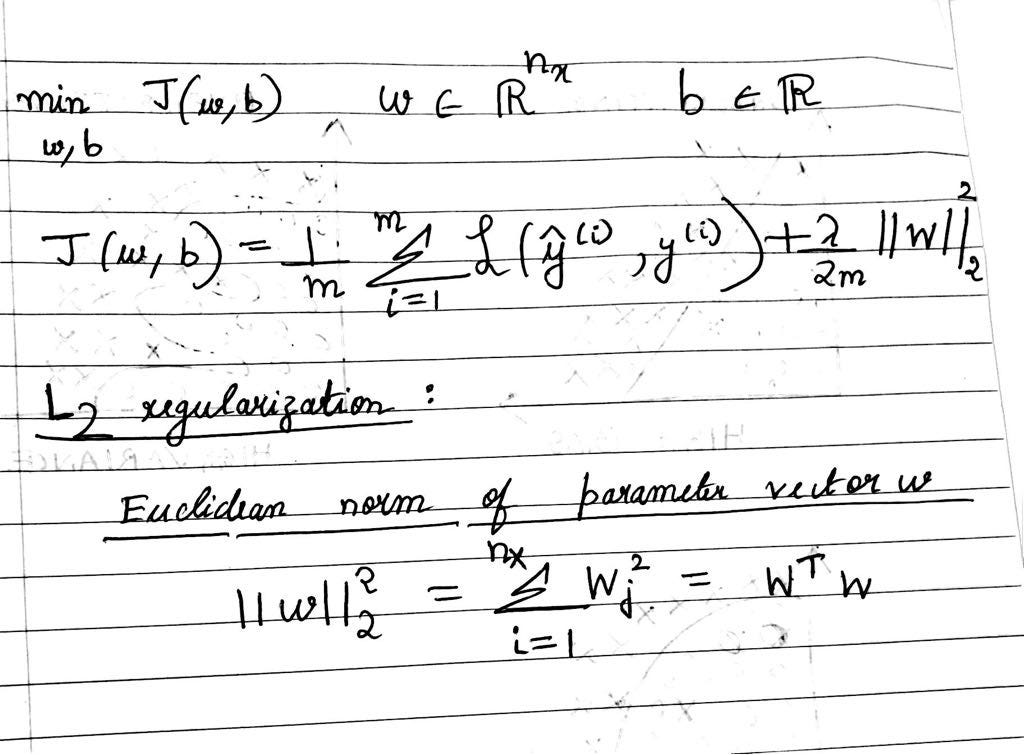 min J(w,b) w ∈ ℝ^{n_x} b ∈ ℝ
w,b
J(w,b) = 1/m Σ_{i=1}^{m} ℒ(ŷ^{(i)}, y^{(i)}) + λ/2m ||w||_2^2
L2 regularization :
Euclidean norm of parameter vector w
||w||_2^2 = Σ_{i=1}^{n_x} w_j^2 = w^T w